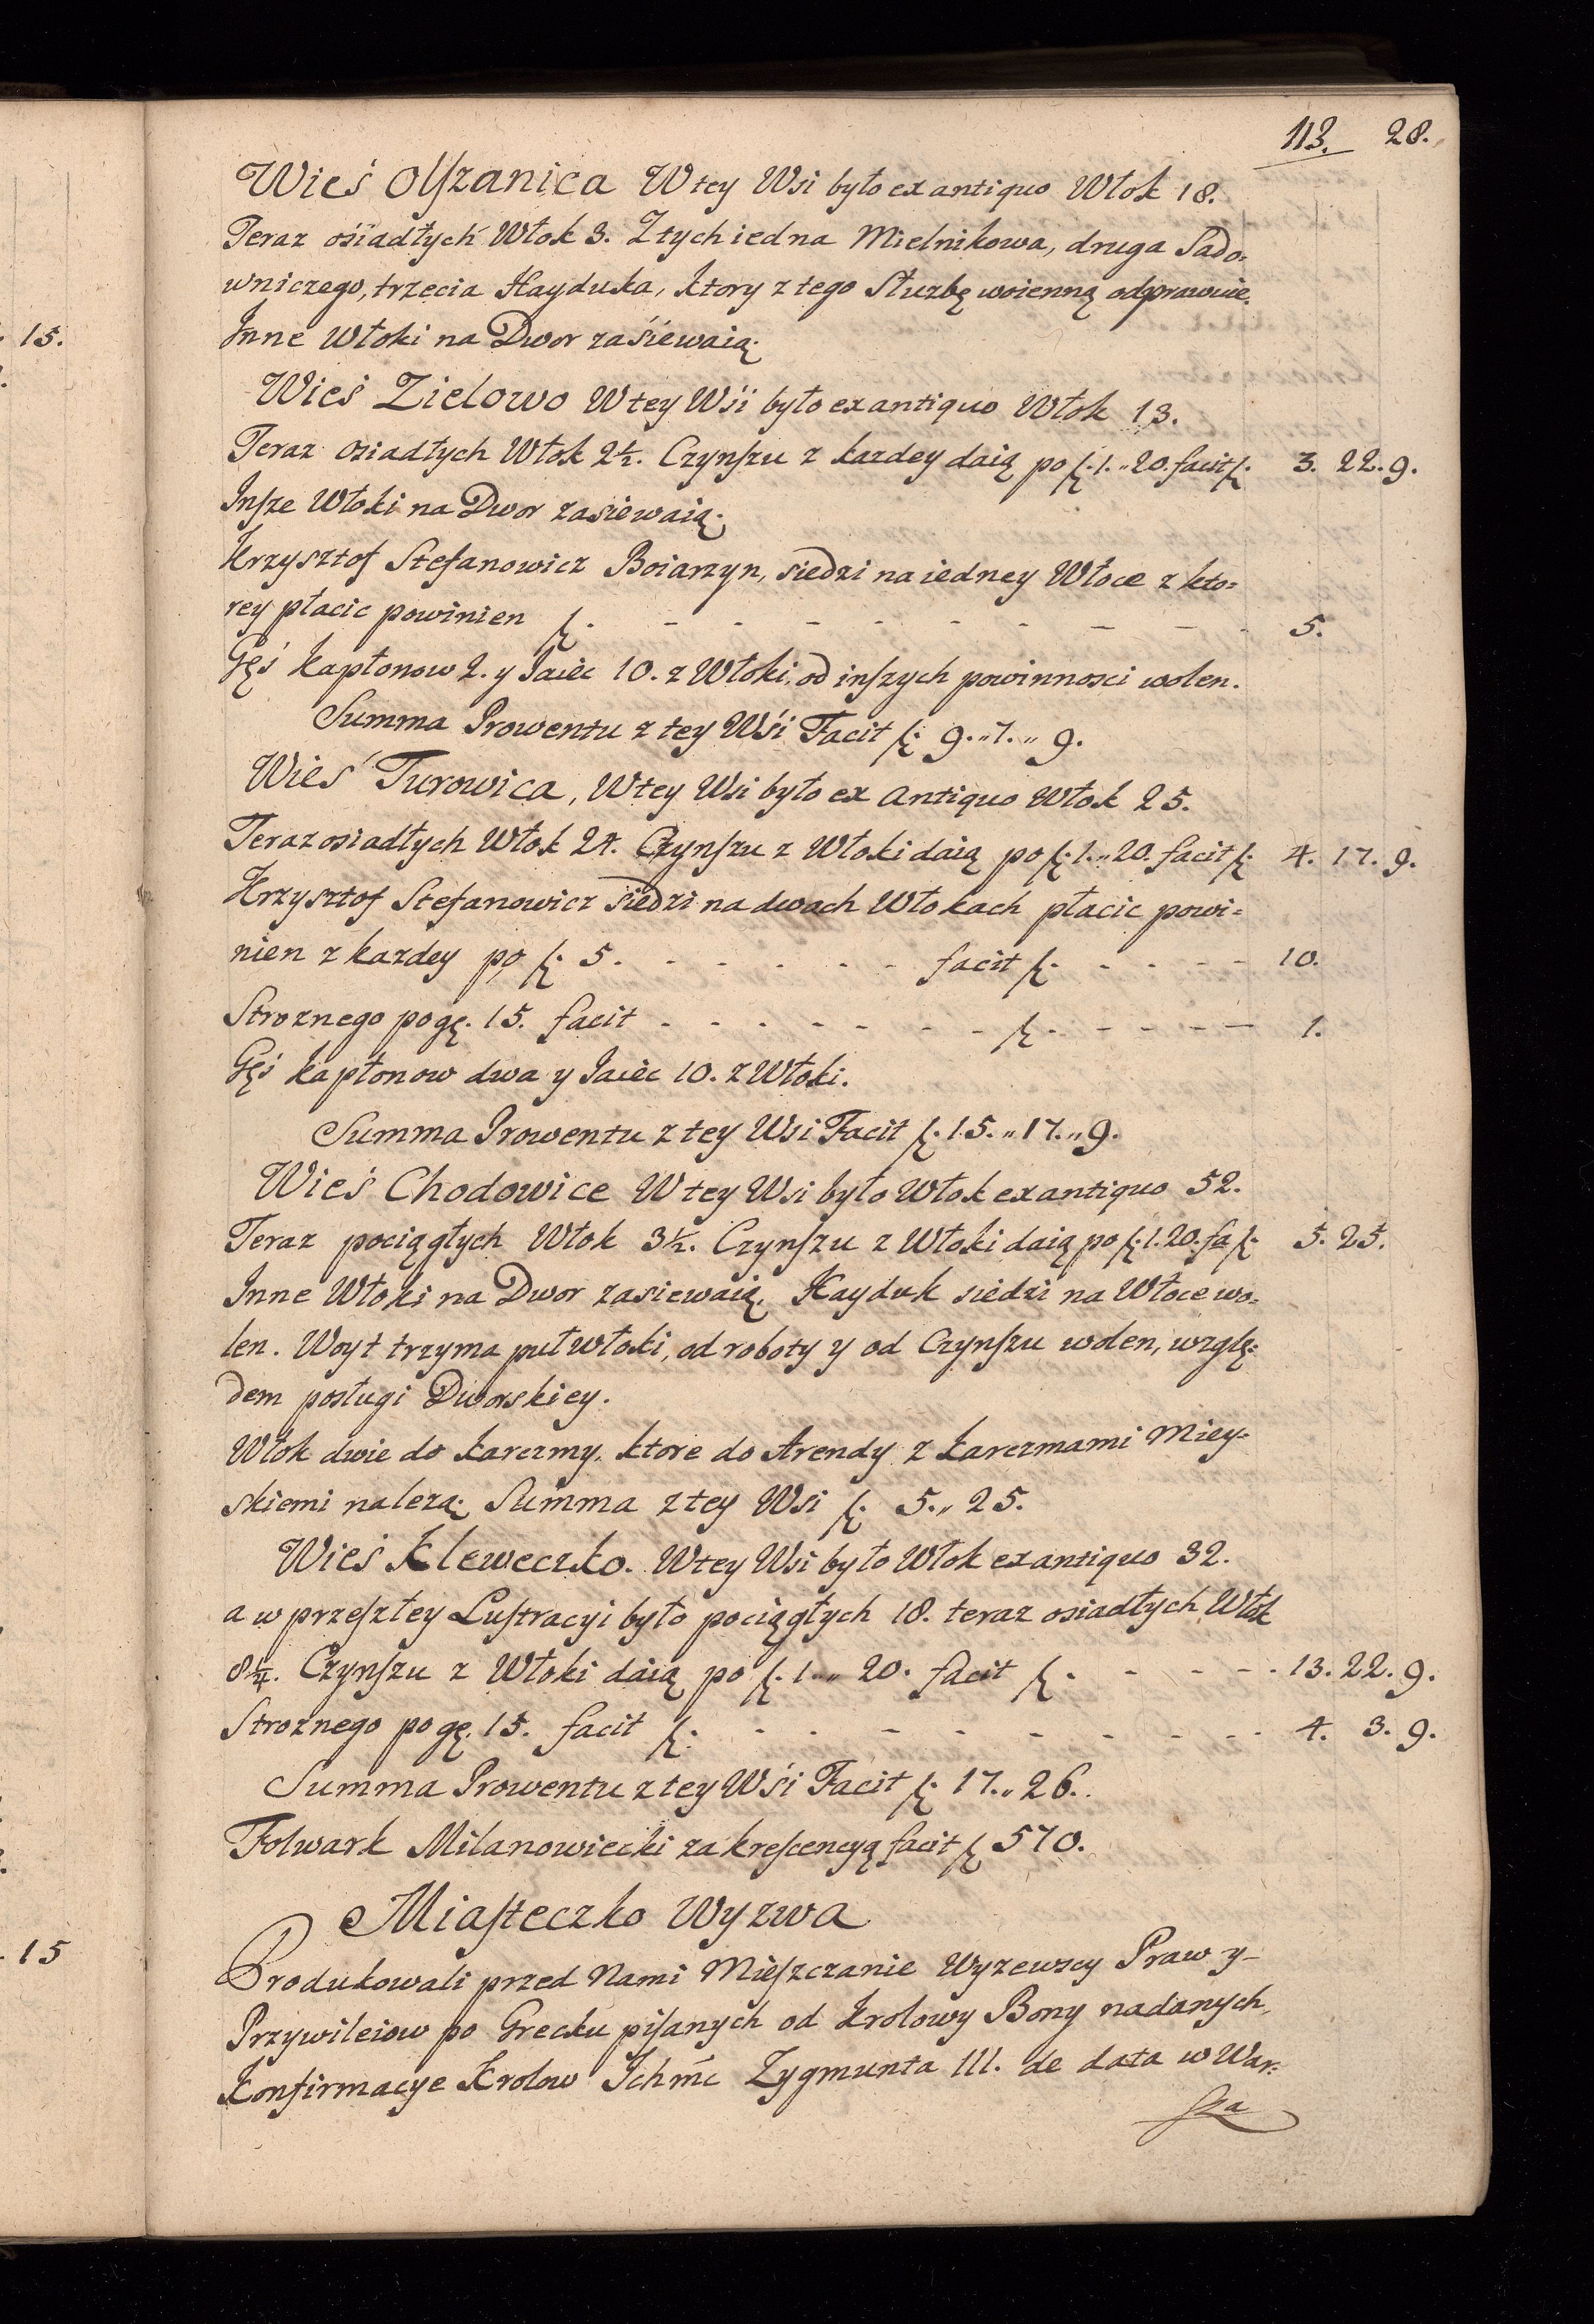 113. 28.
Wieś Olszanica W tey Wsi było ex antiquo Włok 18.
Teraz ośiadłych Włok 3. Z tych iedna Mielnikowa, druga Sado=
wniczego, trzecia Hayduka, ktory z tego Służbę woienną odprawuie.
15.
Inne Włoki na Dwor zaśiewaią.
Wieś Zielowo W tey Wśi było ex antiquo Włok 13.
Teraz osiadłych Włok 2½. Czynszu z kazdey daią po ƶ. 1.„ 20. facit ƶ. 3. 22. 9.
Insze Włoki na Dwor zasiewaią.
Krzysztof Stefanowicz Boiarzyn, siedzi na iedney Włoce z kto=
rey płacic powinien ƶ. - - - - - - - - - 5.
Gęś kapłonow 2. y Jaiec 10. z Włoki, od inszych powinnosci wolen.
Summa Prowentu z tey Wśi Facit ƶ. 9.„ 7.„ 9.
Wieś Turowica, W tey Wsi było ex Antiquo Włok 25.
Teraz osiadłych Włok 24. Czynszu z Włoki daią po ƶ. 1.„ 20. facit ƶ. 4. 17. 9.
Krzysztof Stefanowicz siedzi na dwach Włokach płacic powi=
nien z kazdey po ƶ. 5. - - - - - - facit ƶ. - - - - 10.
Stroznego po gę. 15. facit - - - - - - - - ƶ. - - - - - 1.
Gęś kapłonow dwa y Jaiec 10. z Włoki.
Summa Prowentu z tey Wsi Facit ƶ. 15.„ 17.„ 9.
Wieś Chodowice W tey Wsi było Włok ex antiquo 52.
Teraz pociągłych Włok 3½. Czynszu z Włoki daią po ƶ. 1. 20. fa ƶ. 5. 25.
Inne Włoki na Dwor zasiewaią. Hayduk siedzi na Włoce wo=
len. Woyt trzyma puł włoki, od roboty y od Czynszu wolen, wzglę=
dem posługi Dworskiey.
Włok dwie do karczmy, ktore do Arendy z karczmami Miey=
skiemi nalezą. Summa z tey Wsi ƶ. 5.„ 25.
Wieś Kleweczko. W tey Wsi było Włok ex antiquo 32.
a w przeszłey Lustracyi było pociągłych 18. teraz osiadłych Włok
8¼. Czynszu z Włoki daią po ƶ. 1.„ 20. facit ƶ. - - - - 13. 22. 9.
Stroznego po gę. 15. facit ƶ. - - - - - - - - 4. 3. 9.
Summa Prowentu z tey Wśi Facit ƶ. 17.„ 26.
Folwark Milanowiecki za krescencyą facit ƶ 570.
Miasteczko Wyzwa
15
Produkowali przed Nami Mieszczanie Wyzewscy Praw y
Przywileiow po Grecku pisanych od Krolowy Bony nadanych,
Konfirmacye Krolow Ichmć Zygmunta III. de data w War=
sza